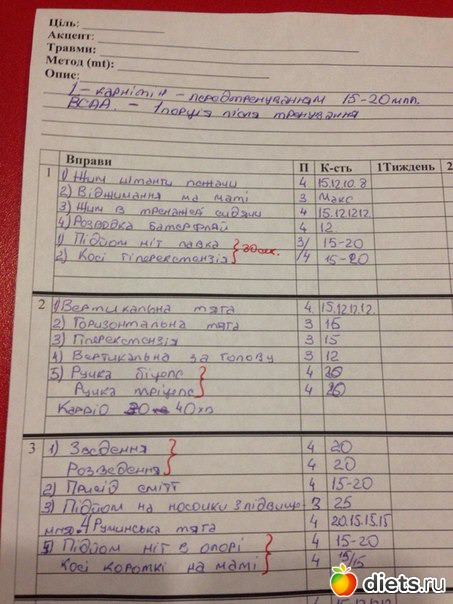 Ціль:
Акцент:
Травми:
Метод (mt):
Опис:
L-карнітін - передтренуванням 15-20 мпл.
BCAA. - 1порція після тренування
Вправи П К-сть 1Тиждень 2
1 1) Жим штанги лежачи 4 15.12.10.8
2) Віджимання на маті 3 Макс
3) Жим в тренажері сидячи 4 15.12.12.12.
4) Розводка батерфляй 4 12
1) Підйом ніг лавка 3/ 15-20
2) Косі гіперекстензія /4 15-20
30сек.
2 1) Вертикальна тяга 4 15.12.12.12.
2) Горизонтальна тяга 3 15
3) Гіперекстензія 3 15
4) Вертикальна за голову 3 12
5) Ручка біцепс 4
Ручка тріцепс 4
Кардіо 40хв
3 1) Зведення 4 20
Розведення 4 20
2) Присід сміт 4 15-20
3) Підйом на носочки з підвищ 3 25
ння. 4 Руминська тяга 4 20.15.15.15
5) Підйом ніг в опорі 4 15-20
Косі короткі на маті 4 15/15
4 15.12.12.12
diets.ru